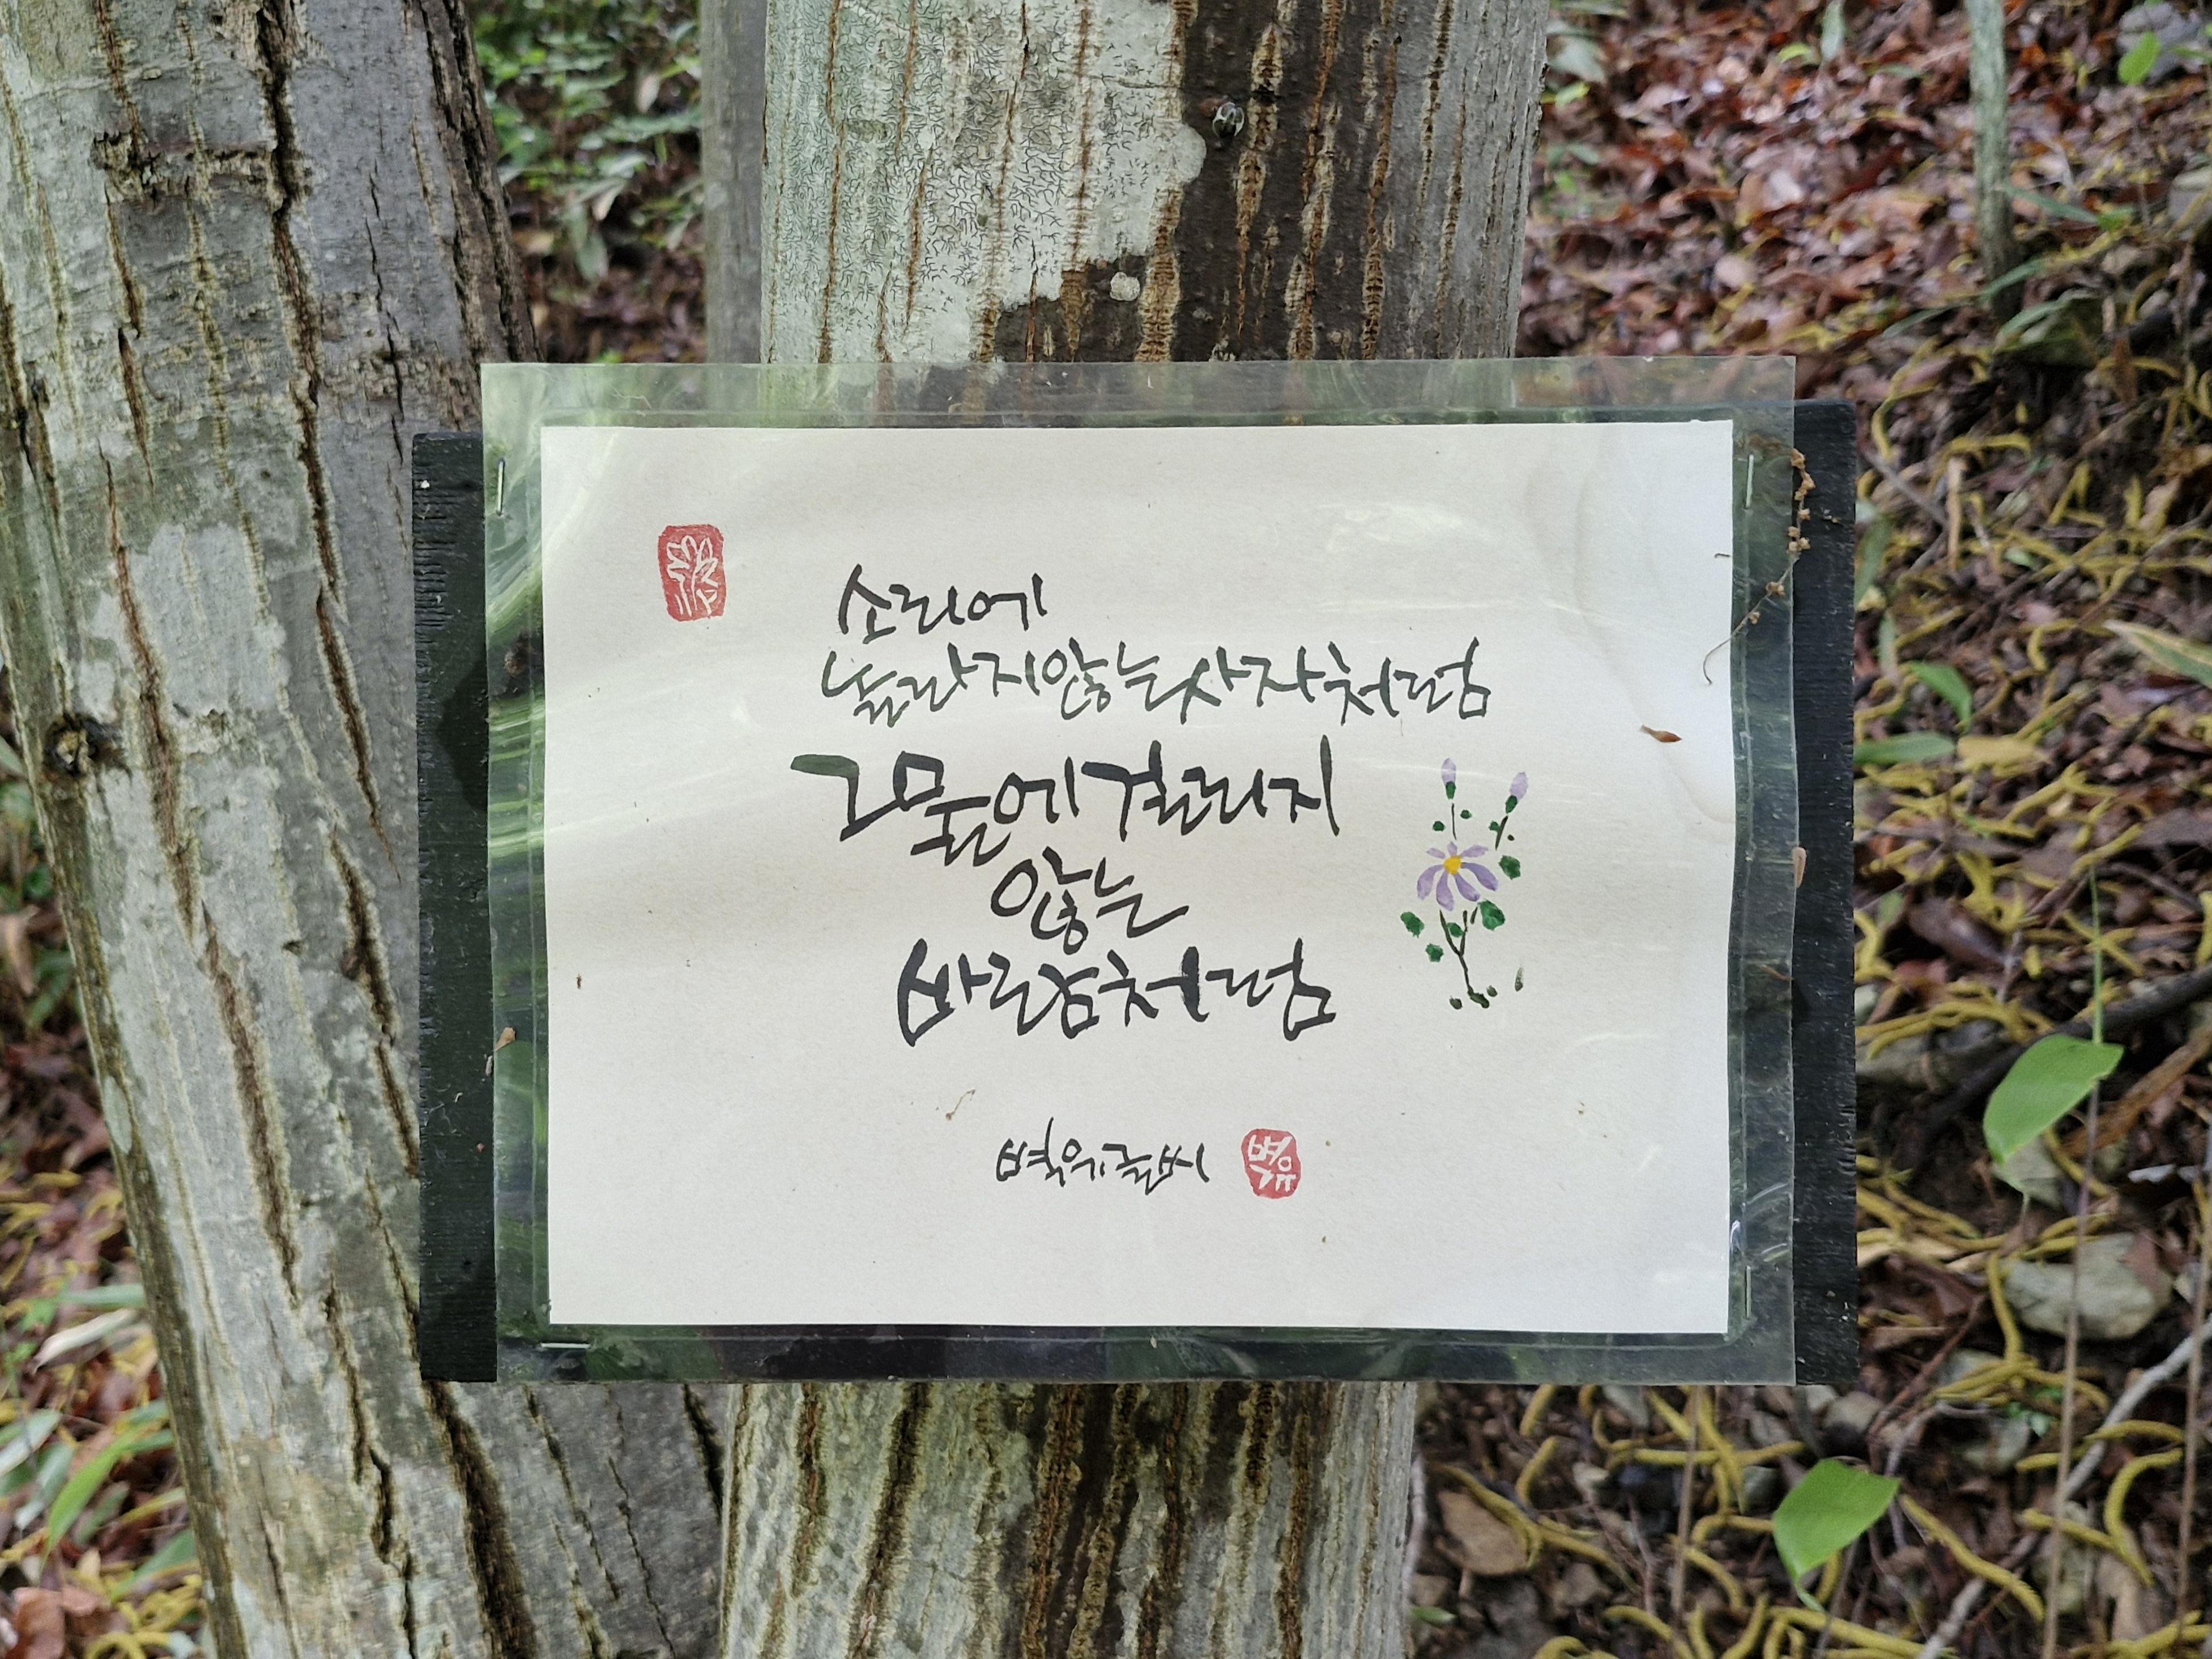 소리에
놀라지않는사자처럼
그물에걸리지
않는
바람처럼
벽우글씨
벽우